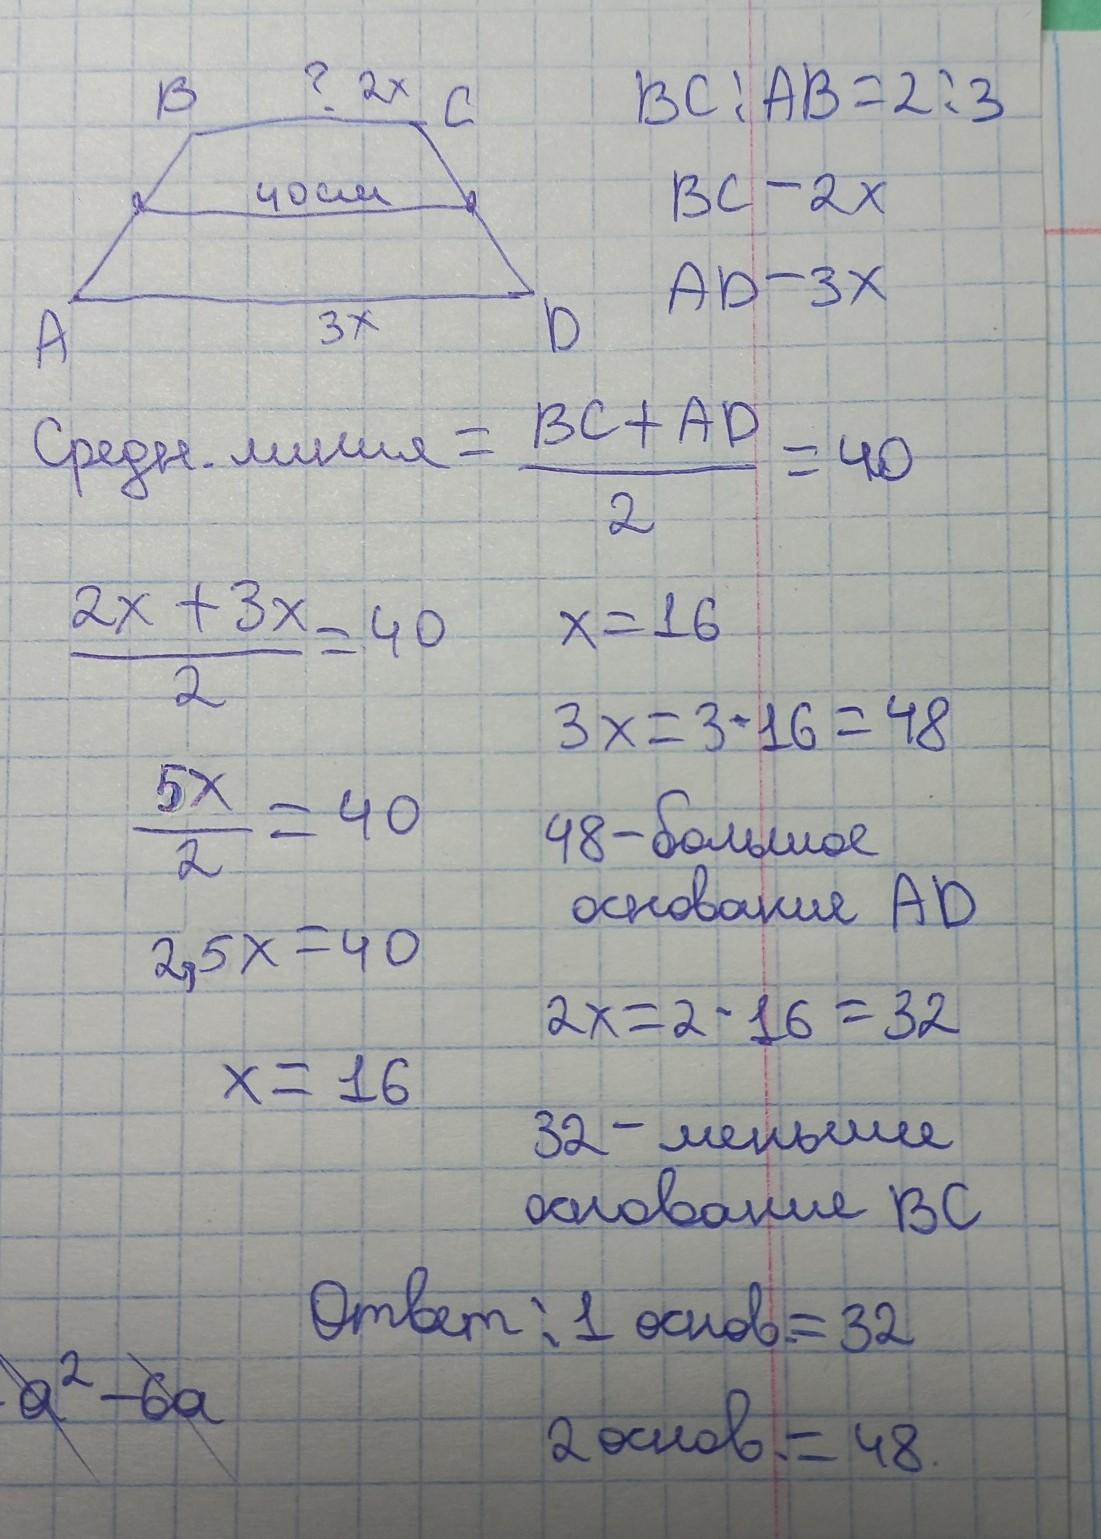 B ? 2x C
40см
A 3x D
BC:AB=2:3
BC-2x
AD-3x
Средн. линия = BC+AD / 2 = 40
2x+3x / 2 = 40
5x / 2 = 40
2,5x=40
x=16
x=16
3x=3·16=48
48-большое
основание AD
2x=2·16=32
32-меньшее
основание BC
Ответ: 1 основ.=32
2 основ.=48.
a²-6a